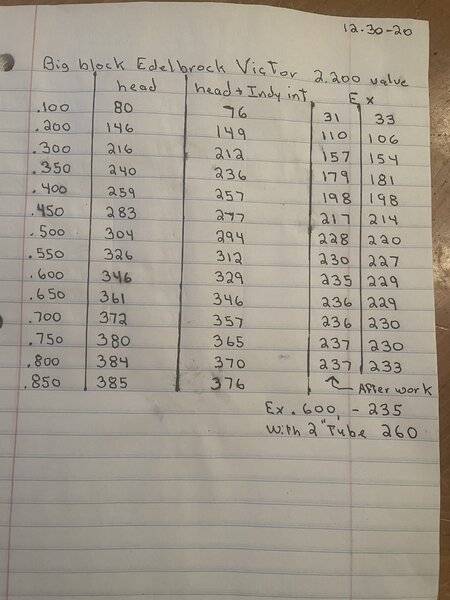 12-30-20
Big block Edelbrock Victor 2.200 valve
head head + Indy int Ex
.100 80 76 31 33
.200 146 149 110 106
.300 216 212 157 154
.350 240 236 179 181
.400 259 257 198 198
.450 283 277 217 214
.500 304 294 228 220
.550 326 312 230 227
.600 346 329 235 229
.650 361 346 236 229
.700 372 357 236 230
.750 380 365 237 230
.800 384 370 237 233
.850 385 376
After work
Ex .600, - 235
With 2" Tube 260